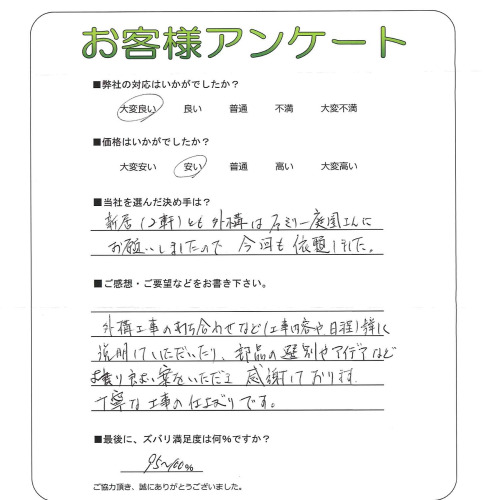 お客様アンケート
■弊社の対応はいかがでしたか？
大変良い 良い 普通 不満 大変不満
■価格はいかがでしたか？
大変安い 安い 普通 高い 大変高い
■当社を選んだ決め手は？
新居(2軒)とも外構はファミリー庭園さんに
お願いしましたので 今回も依頼しました。
■ご感想・ご要望などをお書き下さい。
外構工事の打ち合わせなど(工事内容や日程)詳に
説明していただいたり、部品の選別やアイデアなど
より良い案をいただき 感謝しております。
丁寧な工事の仕上がりです。
■最後に、ズバリ満足度は何%ですか？
95〜100%
ご協力頂き、誠にありがとうございました。